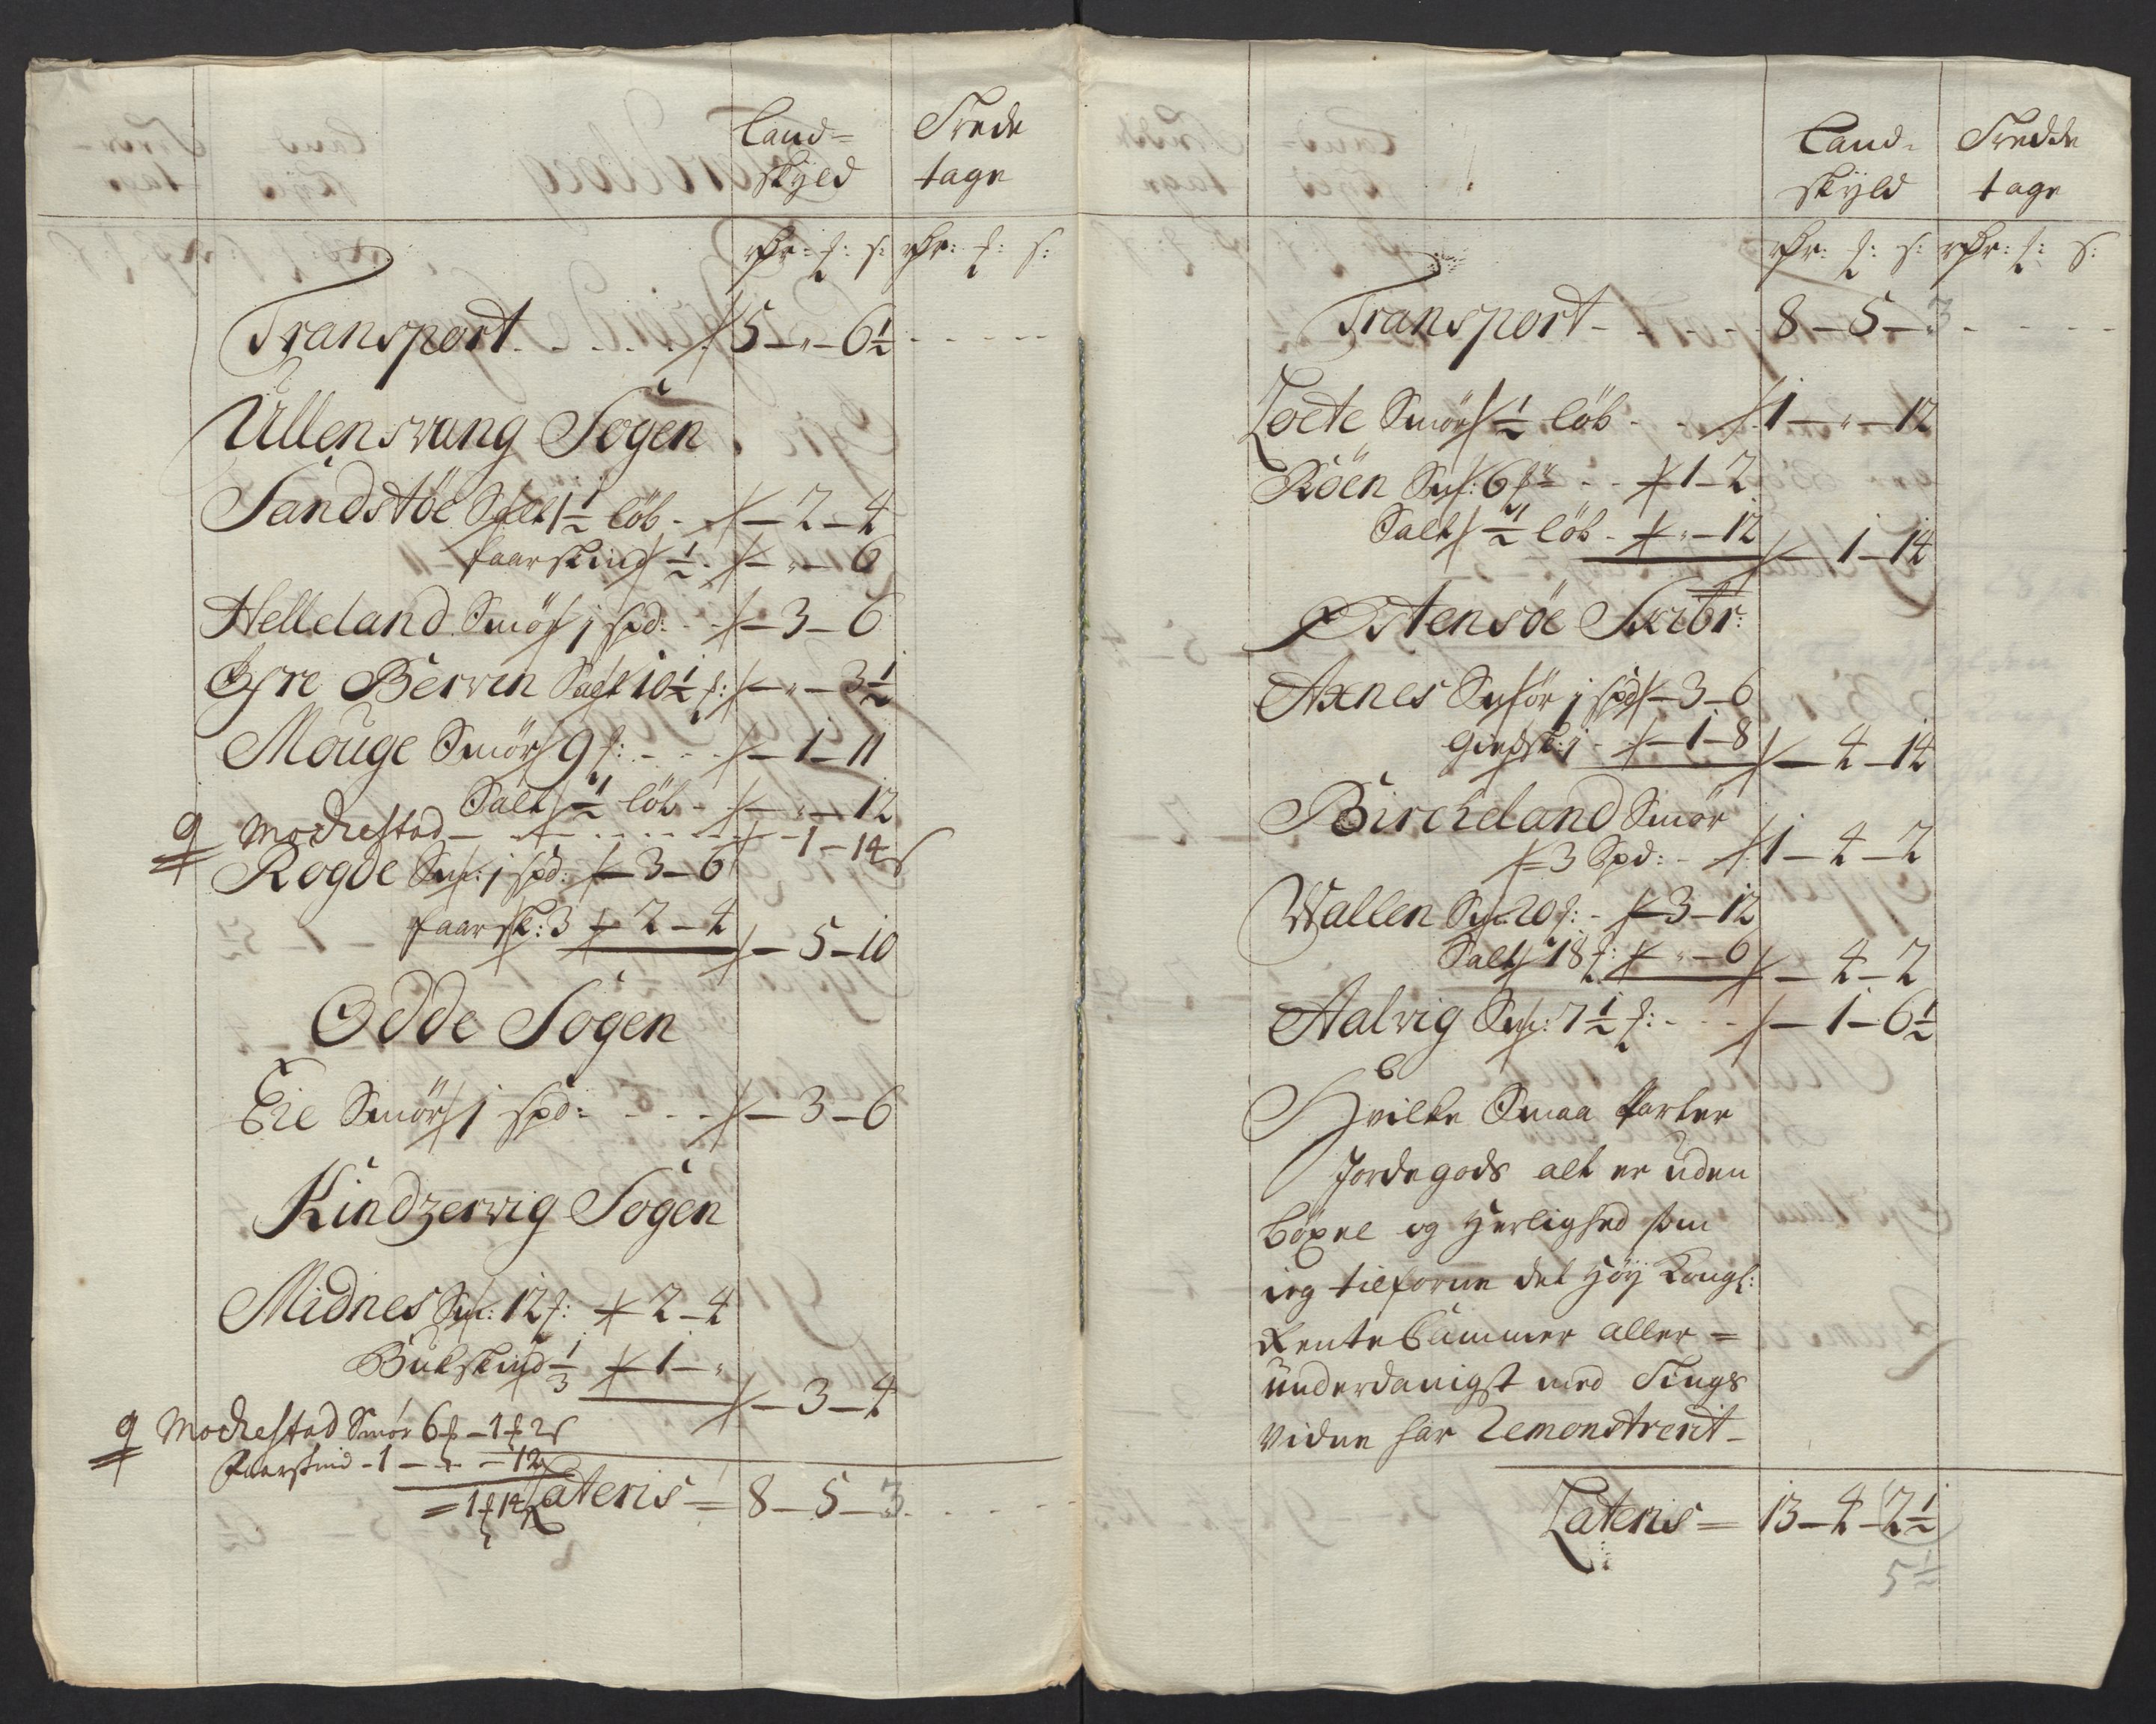 Land= Trede
skyld tage
rdr: £: s: rdr: £: s:
Transport - - - - - 5 - " - 6½
Ullensvang Sogen
Sandstöe Salt 1½ löb - - 2 - 4
faarskind ½ - " - 6
Helleland Smör 1 spd: - - 3 - 6
Öfre Berven Salt 10½ £: - " - 3½
Mouge Smör 9 £: - - - 1 - 11
Salt ½ löb - - " - 12
9 Mockestad - - - - - - 1 - 14 s
Rogde Sm: 1 spd: - 3 - 6
faarsk: 3 - 2 - 4 - 5 - 10
Odde Sogen
Eie Smör 1 spd: - - - - 3 - 6
Kindzervig Sogen
Midnes Sm: 12 £: - 2 - 4
Bukskind ⅓ - 1 - " - 3 - 4
9 Mockestad Smör 6 £ - 1 £ 2 s
Faarskind - 1 - - - 12
= 1 £ 14 s
Lateris = 8 - 5 - 3 - - - -
Land= Tredde
skyld tage
rdr: £: s: rdr: £: s:
Transport - - - - - 8 - 5 - 3 - - - -
Lote Smör ½ löb - - 1 - " - 12
Röen Sm: 6 £r - - 1 - 2
Salt ½ löb - " - 12 - 1 - 14
Östensöe Skibr:
Axnes Smör 1 spd - 3 - 6
giedsk: 1 - - 1 - 8 - 4 - 14
Birckeland Smör
3 Spd: - 1 - 4 - 2
Wallen Sm: 20 £: - 3 - 12
Salt 18 £: " - 6 - 4 - 2
Aalvig Sm: 7½ £: - - - - 1 - 6½
Hvilke Smaa Parter
Jordegods alt er uden
böxel og Herlighed som
ieg tilforne det Höy Kongl:
Rente Cammer aller=
underdanigst med Tings
vidne har Remonstrerit -
Lateris = 13 - 4 - 2½
5½